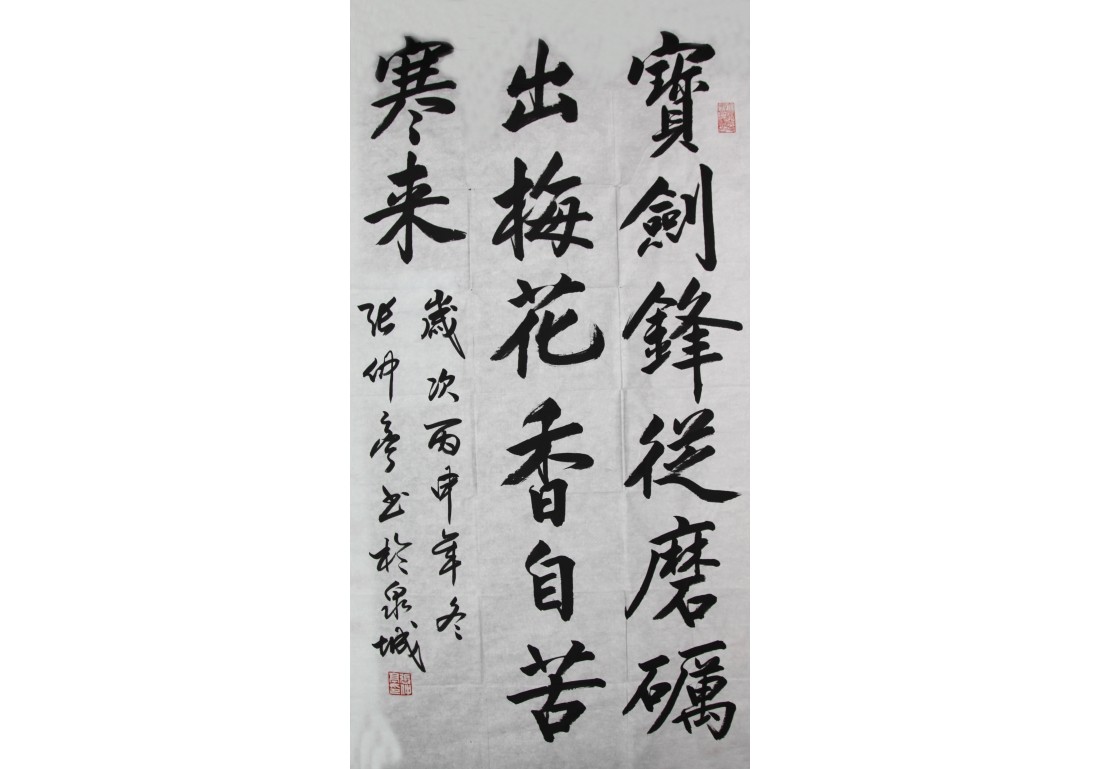 寶劍鋒從磨礪
出梅花香自苦
寒来
歲次丙申年冬
张仲亭书於泉城